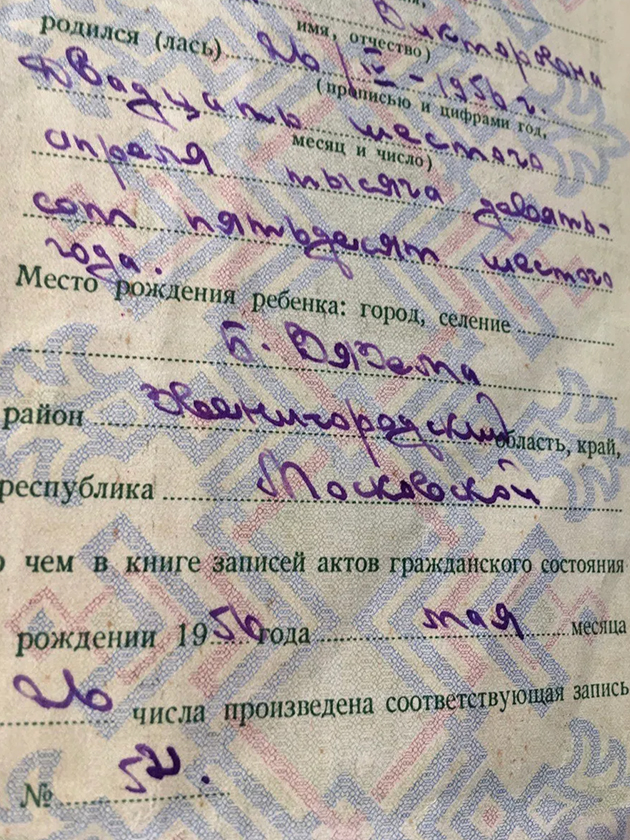 Викторовна
имя, отчество)
родился (лась) 26/IV-1956 г.
(прописью и цифрами год,
Двадцать шестого
месяц и число)
апреля тысяча девять-
сот пятьдесят шестого
года.
Место рождения ребенка: город, селение
Б. Вяземы
район Звенигородский область, край,
республика Московской
чем в книге записей актов гражданского состояния
рождении 1956 года мая месяца
26 числа произведена соответствующая запись
№